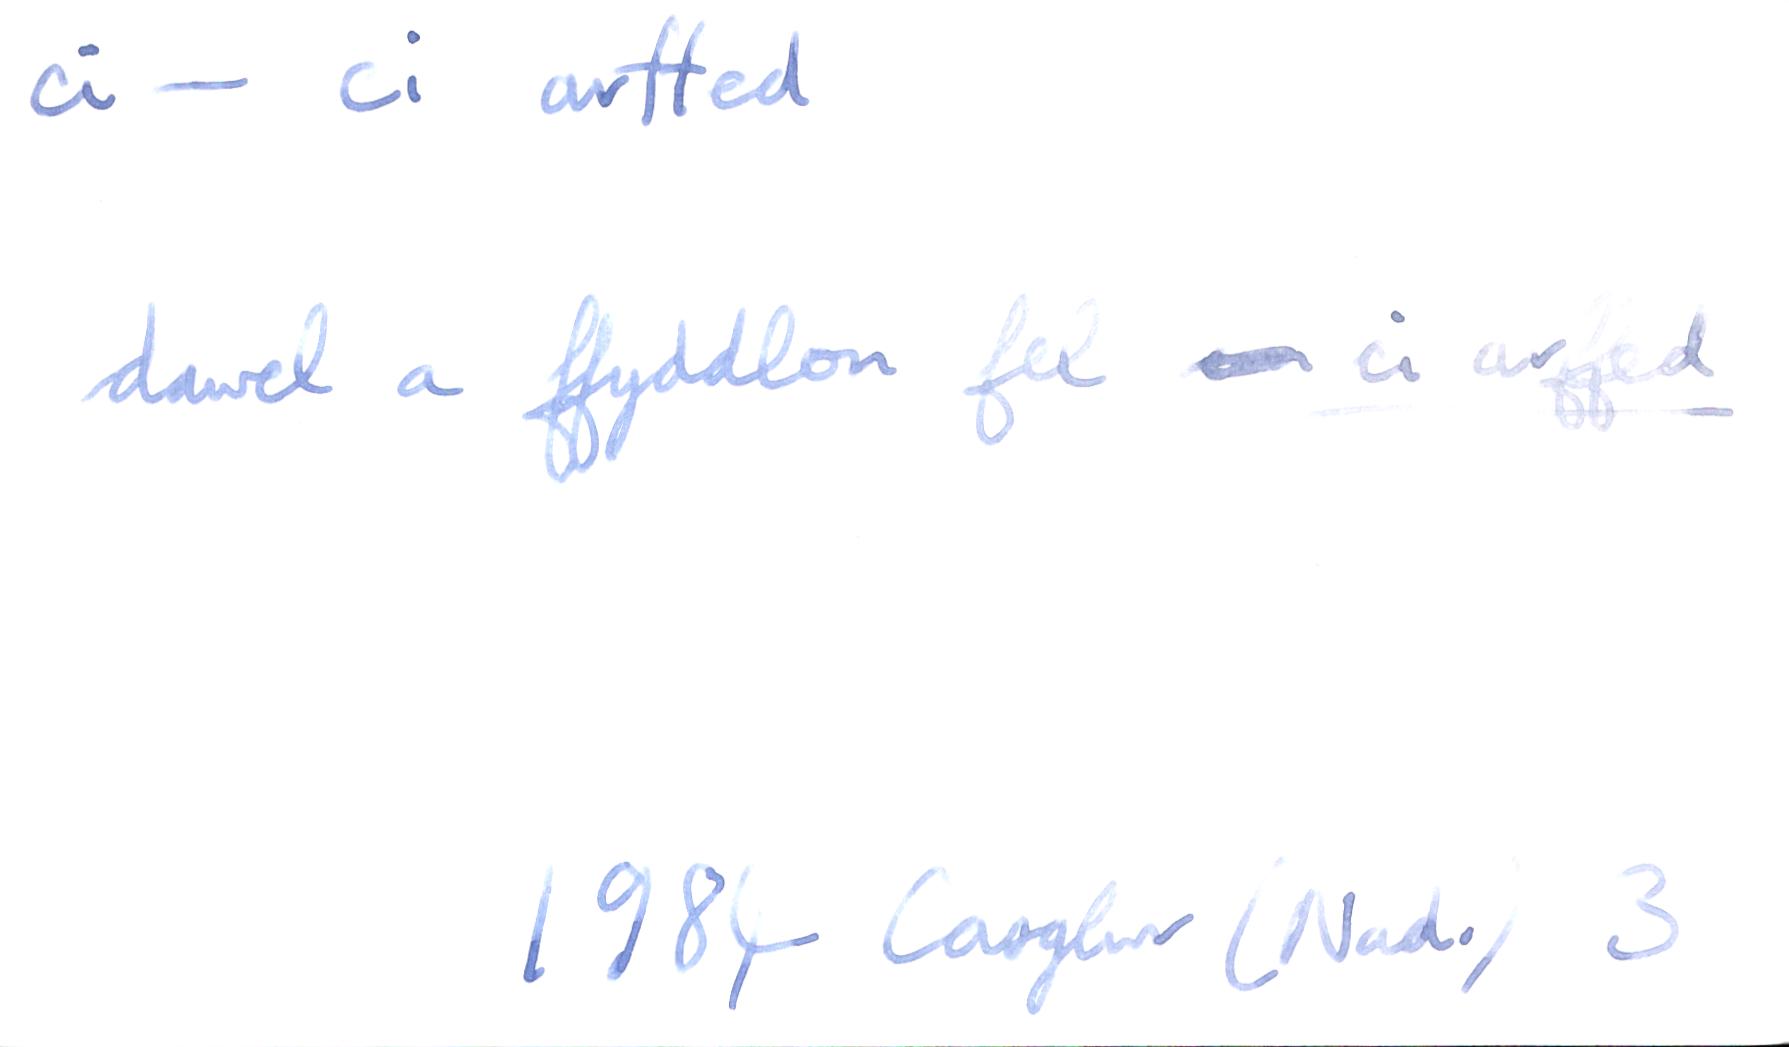 ci — ci arffed
dawel a ffyddlon fel ci arffed
1984 Casglwr (Nad.) 3